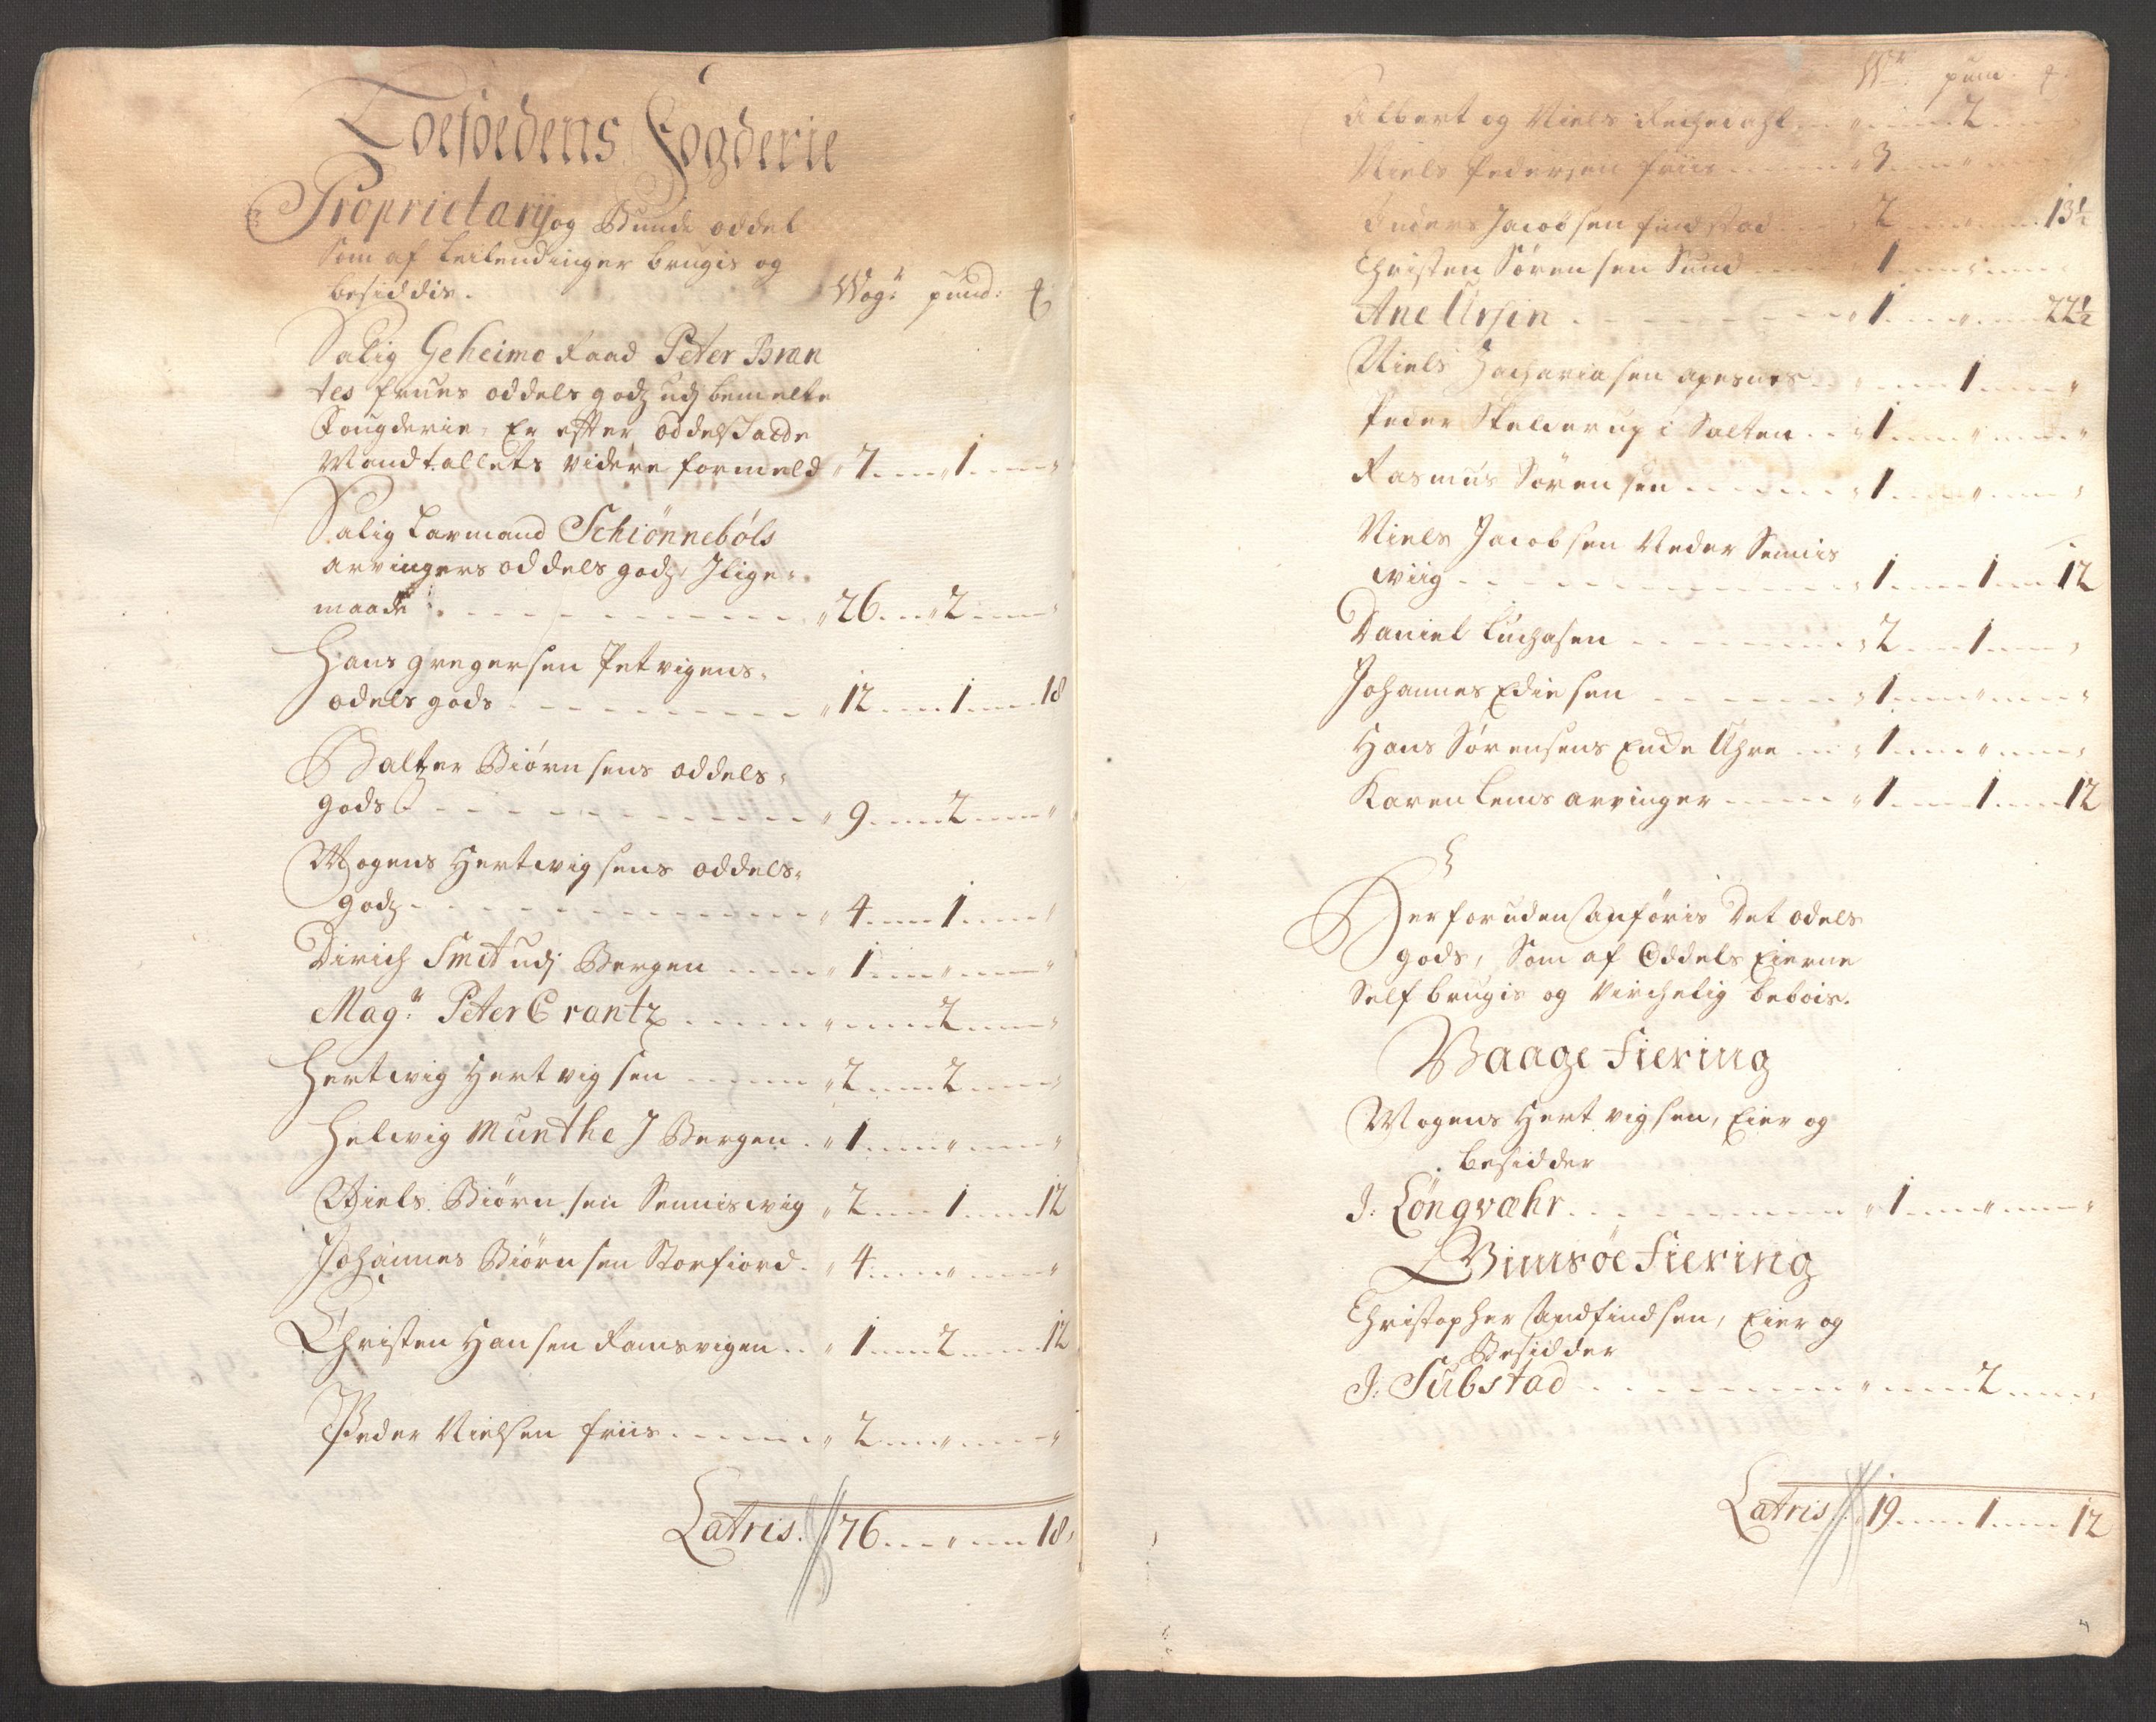 Loefoedens Fogderie
Proprietarij og Bunde oddel
som af Leilendinger brugis og
besiddis. Wog: pund:
Salig Geheime Raad Peter Bran
tes frues oddels godz udj bemelte
Fougderie, Er effter oddel Jorde
Mandtallets videre formeld 7 1
Salig Laumand Schiønnebóls
arvingers oddels godz Jlige
maade 26 2
Hans Gregersen Petvigens
odels gods 12 1 18
Baltzer Biórnsens oddels
gods 9 2
Mogens Hertwigsens oddels
godz 4 1
Dirich Smit udj Bergen 1
Magr: Peter Crantz 2
Hertwig Hertvigsen 2 2
Helwig Munthe J Bergen 1
Niels Biórnsen Senniswig 2 1 12
Johannes Biórnsen Storfiord 4
Christen Hansen Ramsvigen 1 2 12
Peder Nielsen friis 2
Latris. 76 18
Wr: pund.
Albert og Niels 2
Niels Pedersen friis 3
Anders Jacobsen findstad 2 13½
Christen Sórensen Sund 1
Ane Ursin 1 22½
Niels Zachariasen apesnes 1
Peder Skelderup i Salten 1
Rasmus Sórensen 1
Niels Jacobsen Neder Sennis
wiig 1 1 12
Daniel Luchasen 2 1
Johannes Ediesen 1
Hans Sórensens Ende Uhre 1
Karen Lems arvinger 1 1 12
Herforuden Anføris det odels
gods, som af Oddels Eierne
Self brugis og virchelig bebois.
Waage Fiering
Mogens Hertvigsen, Eier og
besidder
J: Lóngvæhr 1
Bimsøe Fiering
Christopher Andfindsen, Eier og
Besidder
J: Substad 2
Latris. 19 1 12